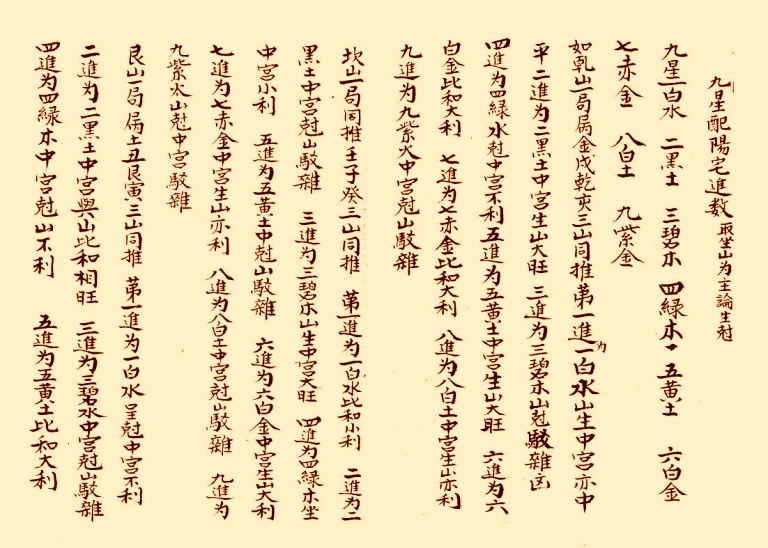 九星配陽宅進数 取坐山为主論生尅
九星一白水 二黑土 三碧木 四緑木 五黃土 六白金
七赤金 八白土 九紫金
如乹山一局属金戌乾亥三山同推苐一進为一白水山生中宮亦中
平二進为二黑土中宮生山大旺 三進为三碧木山尅駁雜凶
四進为四緑水尅中宮不利五進为五黃土中宮生山大旺 六進为六
白金比和大利 七進为七赤金比和大利 八進为八白土中宮生山亦利
九進为九紫火中宮尅山駁雜
坎山一局同推壬子癸三山同推 苐一進为一白水比和小利 二進为二
黑土中宮尅山駁雜 三進为三碧木山生中宮大旺 四進为四緑木坐
中宮小利 五進为五黃土中尅山駁雜 六進为六白金中宮生山大利
七進为七赤金中宮生山亦利 八進为八白土中宮尅山駁雜 九進为
九紫火山尅中宮駁雜
艮山一局属土丑艮寅三山同推 苐一進为一白水星尅中宮不利
二進为二黑土中宮與山比和相旺 三進为三碧水中宮尅山駁雜
四進为四緑木中宮尅山不利 五進为五黃土比和大利